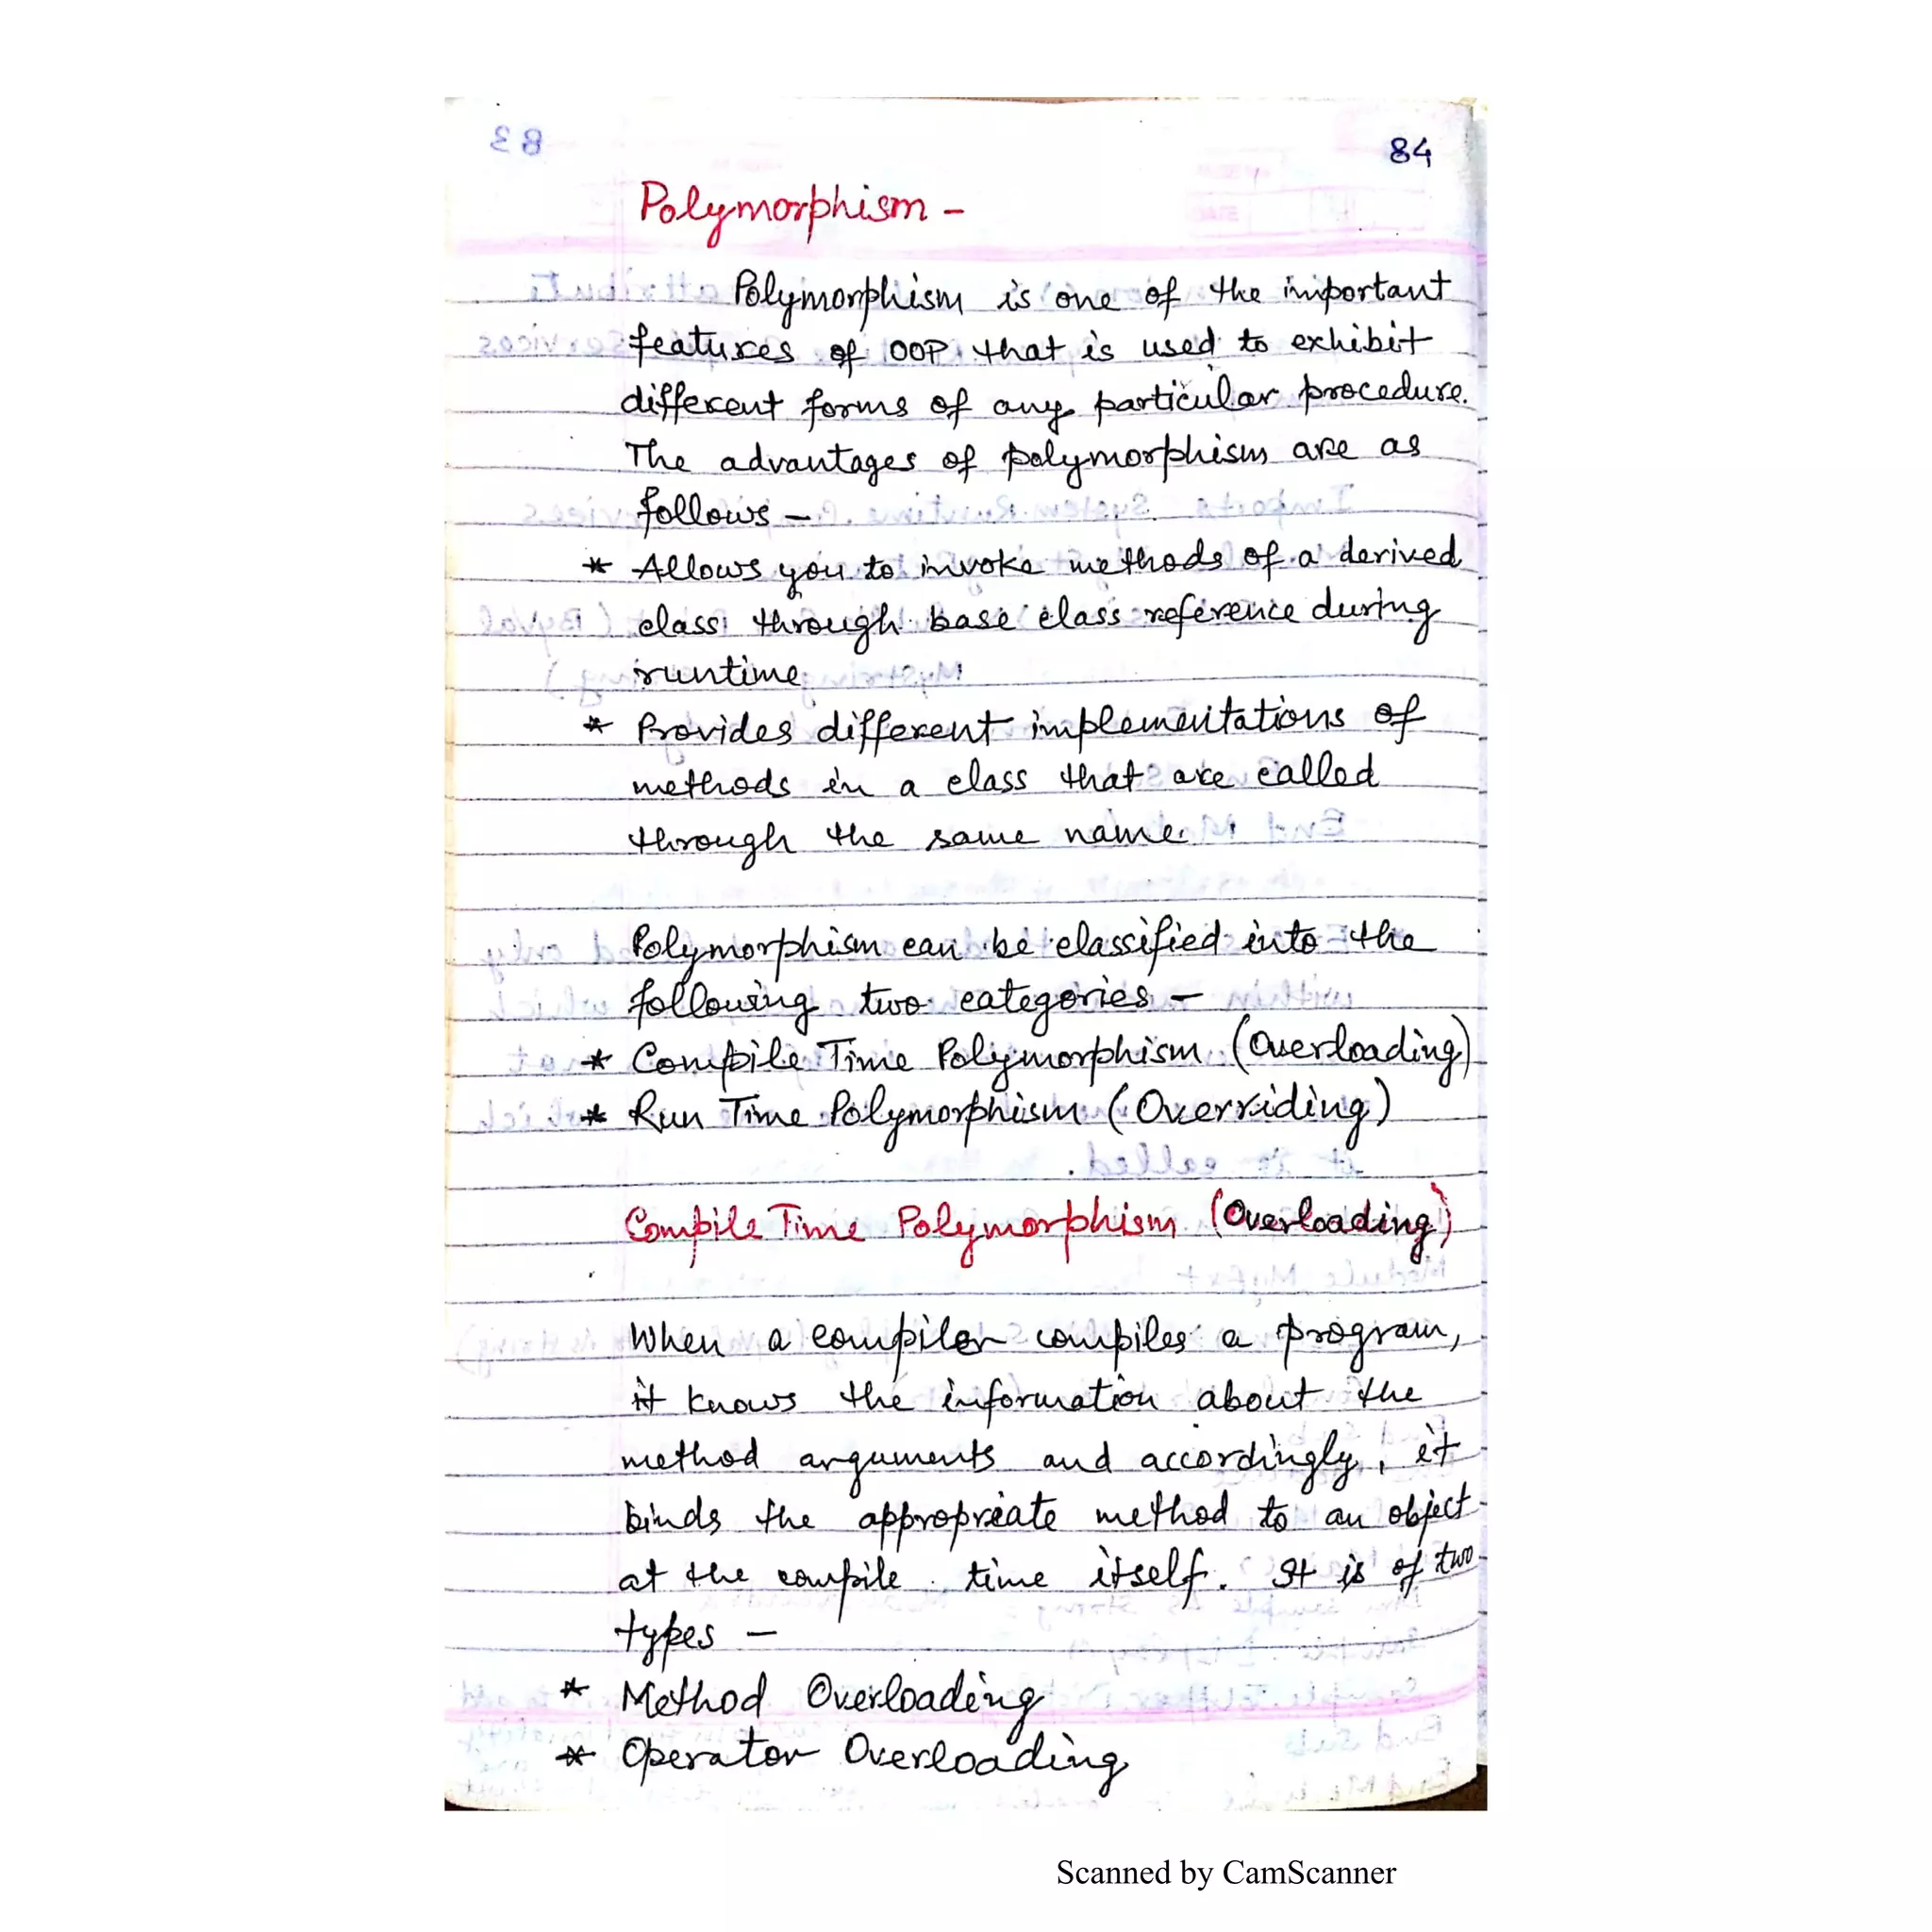 84
Polymorphism -
Polymorphism is one of the important
features of OOP that is used to exhibit
different forms of any particular procedure.
The advantages of polymorphism are as
follows -
* Allows you to invoke methods of a derived
class through base class reference during
runtime
* Provides different implementations of
methods in a class that are called
through the same name.
Polymorphism can be classified into the
following two categories -
* Compile Time Polymorphism (Overloading)
* Run Time Polymorphism (Overriding)
Compile Time Polymorphism (Overloading)
When a compiler compiles a program,
it knows the information about the
method arguments and accordingly, it
binds the appropriate method to an object
at the compile time itself. It is of two
types -
* Method Overloading
* Operator Overloading
Scanned by CamScanner